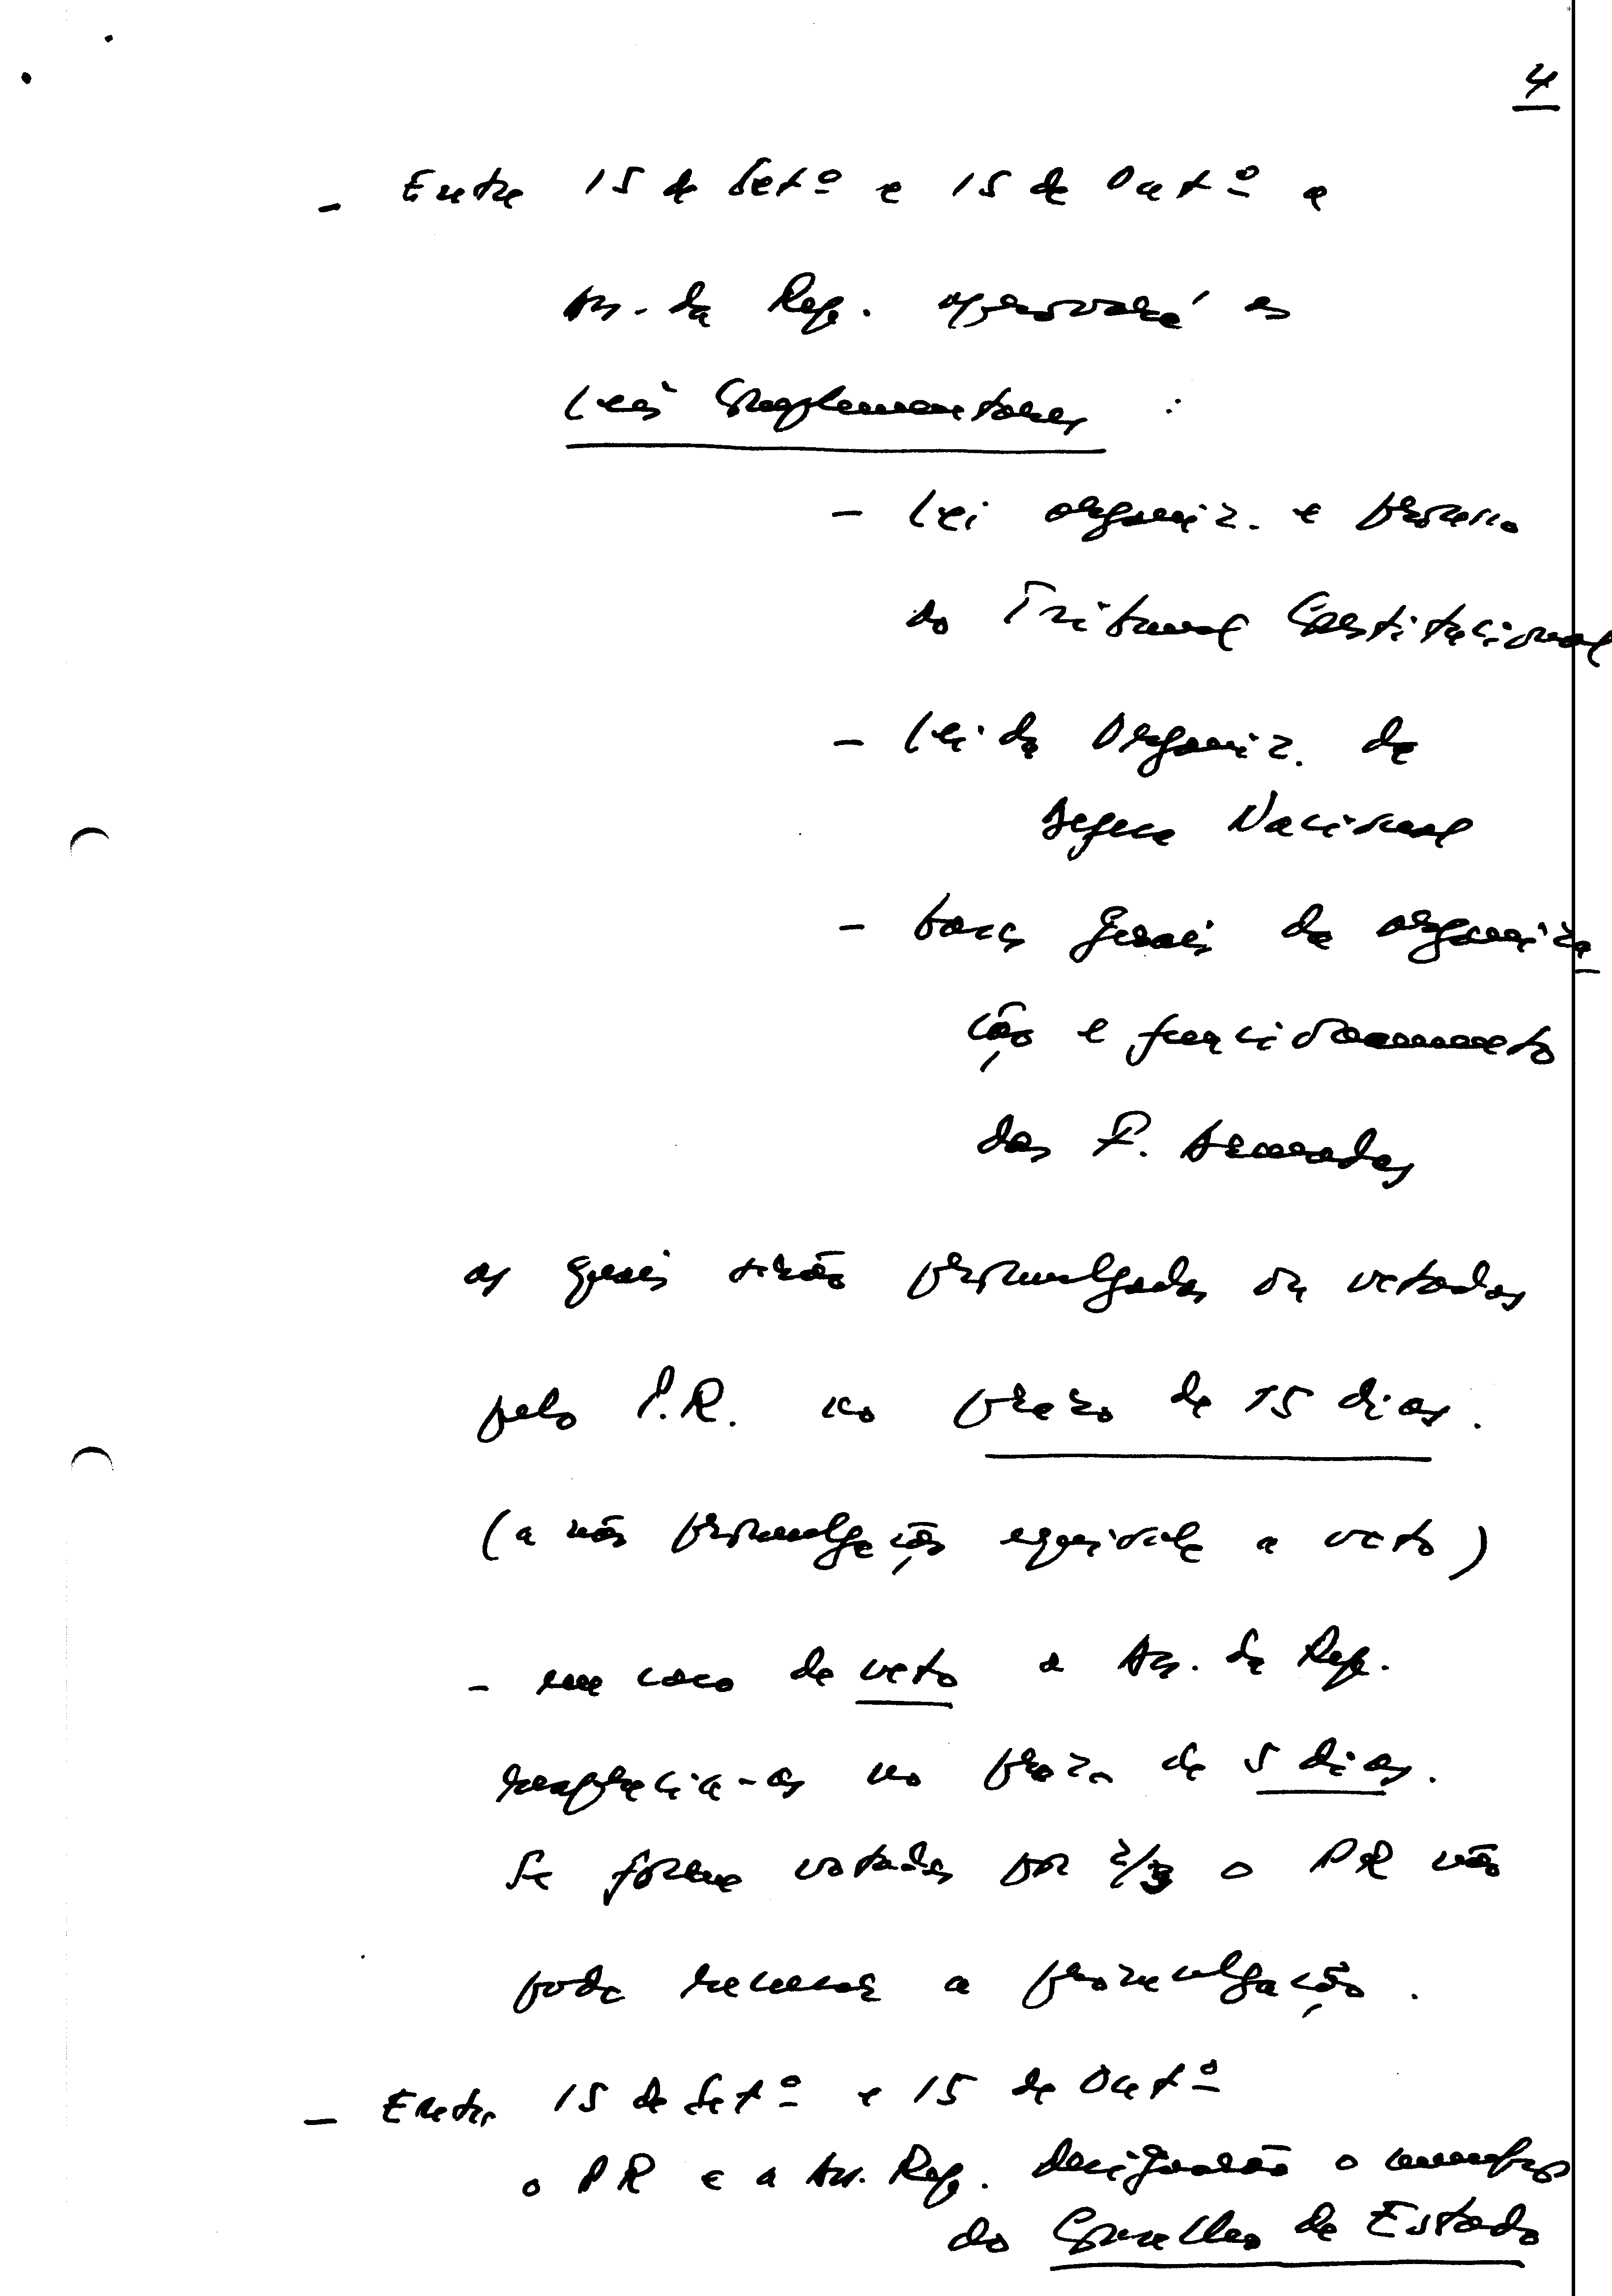 4
- Entre 15 de Setº e 15 de Outº a
Ass. da Rep. aprovará as
Leis Complementares :
- Lei organiz. e processo
do Tribunal Constitucional
- Lei da Organiz. da
Defesa Nacional
- bases gerais da organiza
ção e funcionamento
das F. Armadas
as quais serão promulgadas ou vetadas
pelo P.R. no prazo de 15 dias.
(a não promulgação equivale a veto)
- em caso de veto a Ass. da Rep.
reaprecia-as no prazo de 5 dias.
Se forem votadas por 2/3 o PR não
pode recusar a promulgação.
- Entre 15 de Setº e 15 de Outº
o PR e a Ass. Rep. designarão o membros
do Conselho de Estado